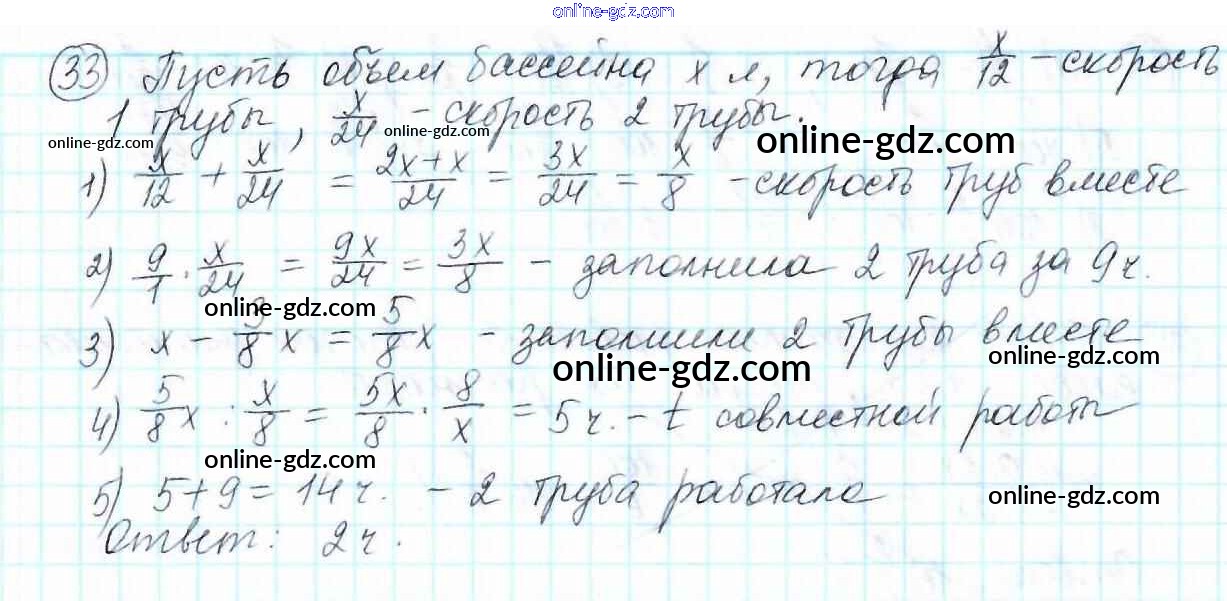 online-gdz.com
33 Пусть объем бассейна x л, тогда x/12 - скорость
1 трубы, x/24 - скорость 2 трубы.
online-gdz.com online-gdz.com online-gdz.com
1) x/12 + x/24 = 2x+x/24 = 3x/24 = x/8 - скорость труб вместе
2) 9/1 · x/24 = 9x/24 = 3x/8 - заполнила 2 труба за 9ч.
online-gdz.com
3) x - 3/8 x = 5/8 x - заполнили 2 трубы вместе
online-gdz.com online-gdz.com
4) 5/8 x : x/8 = 5x/8 · 8/x = 5ч. - t совместной работы
online-gdz.com
5) 5+9=14ч. - 2 труба работала
online-gdz.com
Ответ: 2ч.